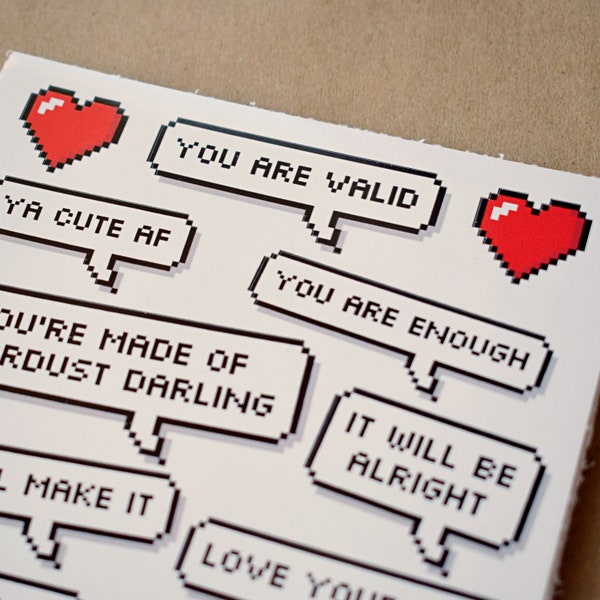 YOU ARE VALID
YA CUTE AF
YOU ARE ENOUGH
OU'RE MADE OF
RDUST DARLING
IT WILL BE
ALRIGHT
L MAKE IT
LOVE